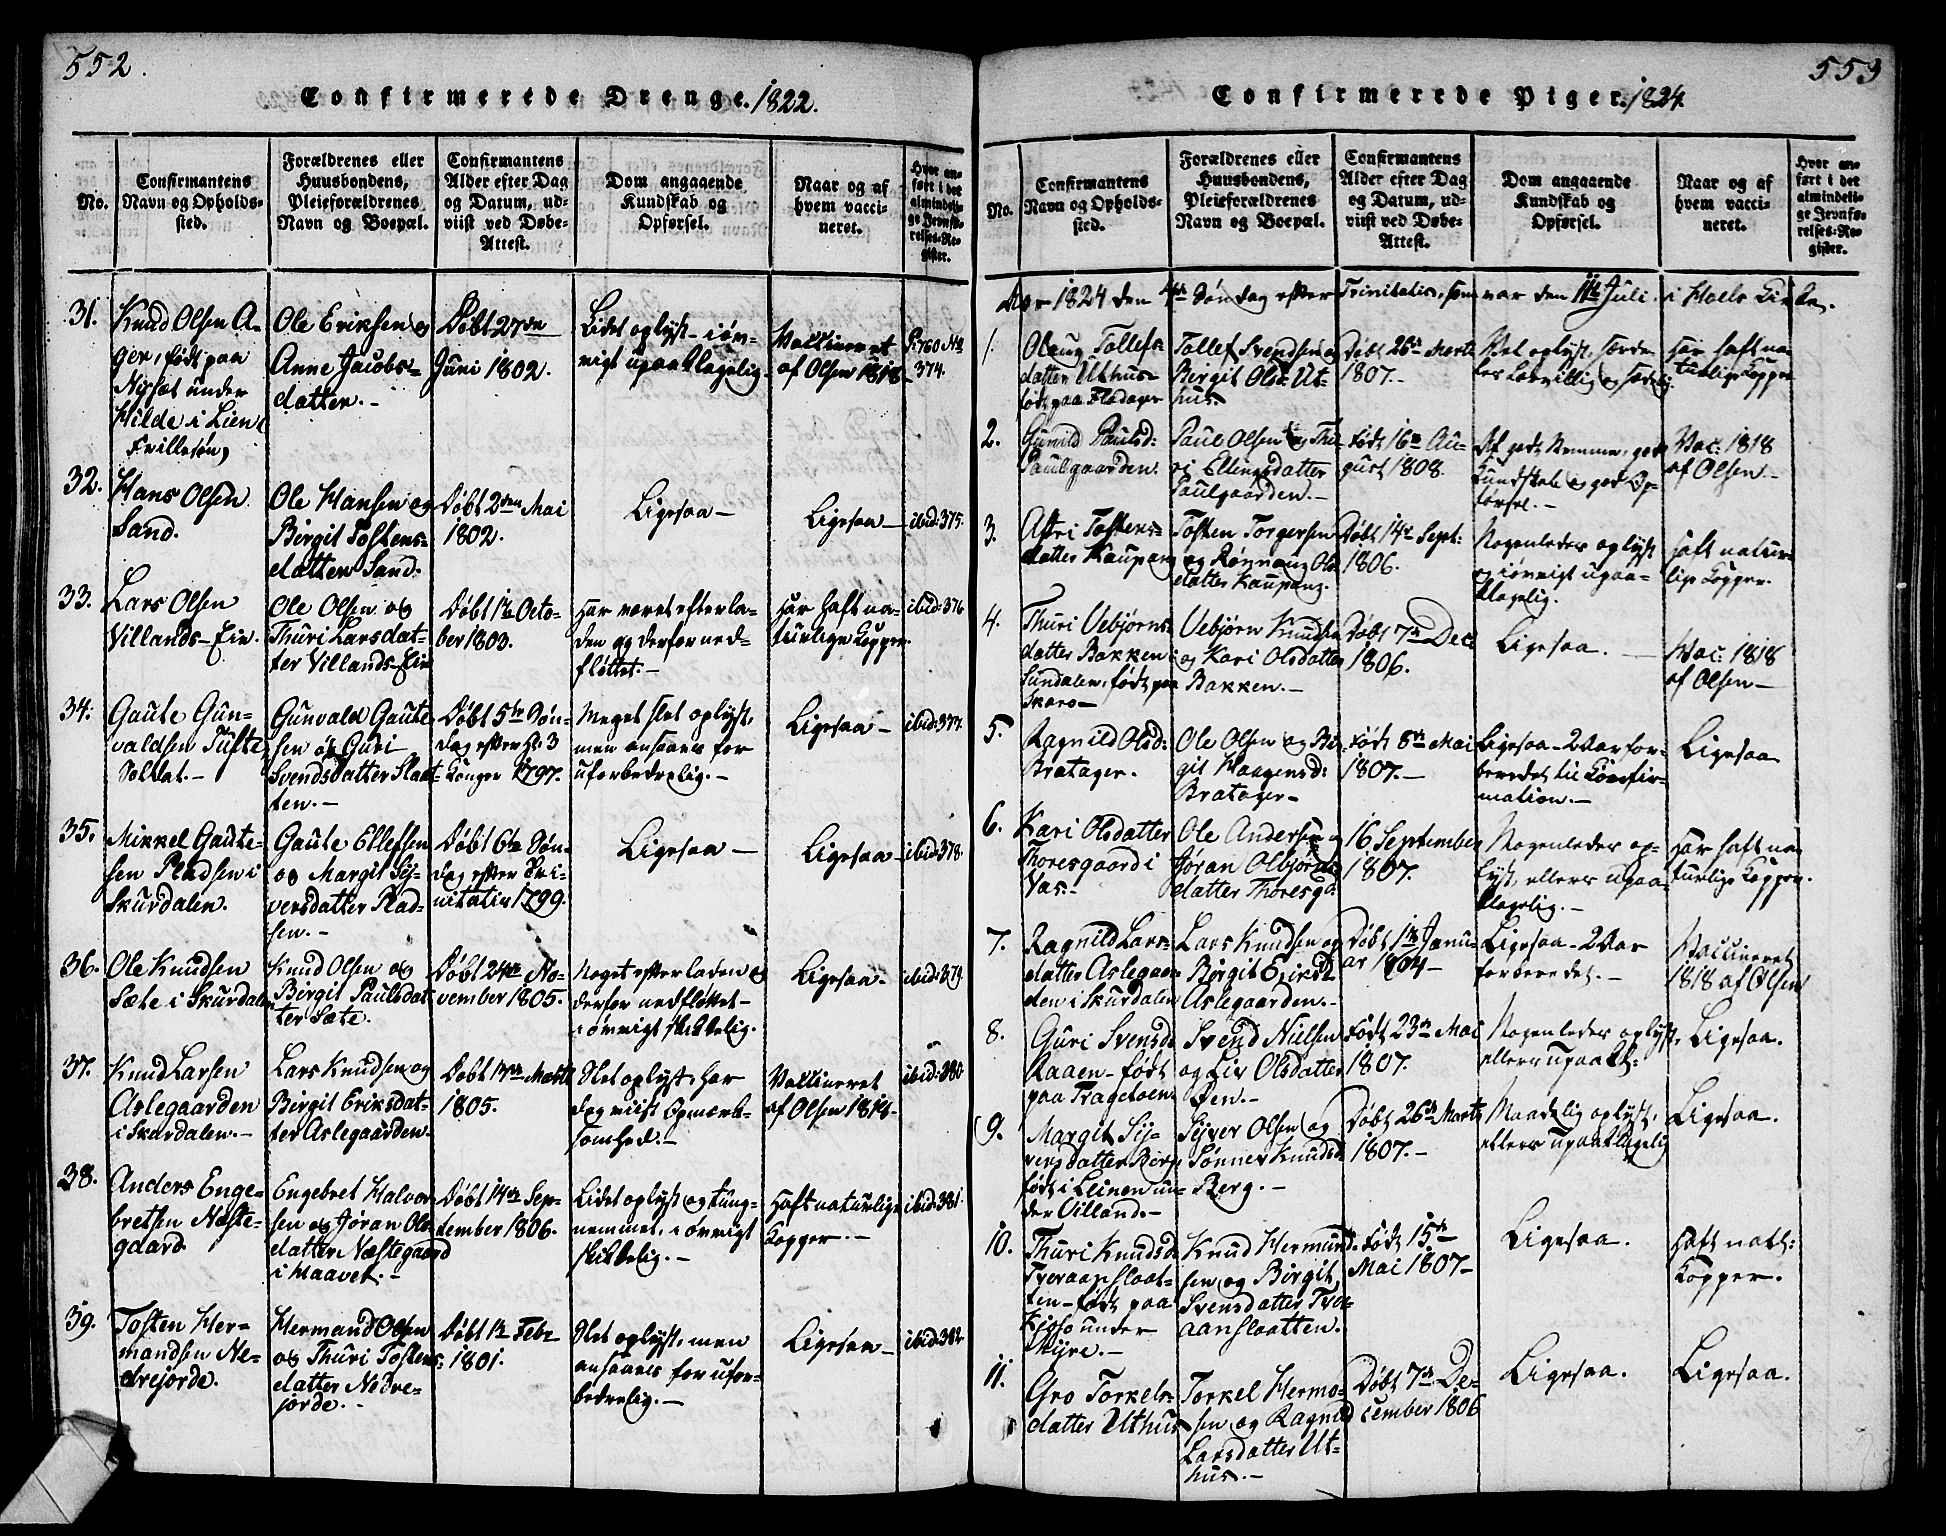 552.
Confirmerede Drenge. 1822.
No.
Confirmantens Navn og Opholds-sted.
Forældrenes eller Huusbondens, Pleieforældrenes Navn og Boepæl.
Confirmantens Alder efter Dag og Datum, ud-viist ved Døbe-Attest.
Dom angaaende Kundskab og Opførsel.
Naar og af hvem vacci-neret.
Hvor an-ført i det almindeli-ge Jevnfø-relses-Re-gister.
31.
Knud Olsen A-
ger, født paa
Nysæt under
Hilde i Lien
Frillesøn)
Ole Eriksen og
Anne Jacobs-
datter.-
Døbt 27de
Juni 1802.
Lidet oplyst - iøv-
rigt upaaklagelig.
Vaccineret
af Olsen 1818-
P. 760 No
374.
32.
Hans Olsen
Sand.
Ole Hansen og
Birgit Tostens-
datter Sand.
Døbt 2den Mai
1802.
Ligesaa -
Ligesaa -
ibid: 375.
33.
Lars Olsen
Villands-Eie.
Ole Olsen og
Thuri Larsdat-
ter Villands-Eie
Døbt 1te Octo-
ber 1803.
Har været efterla-
den og derfor ned-
fløttet.-
Har haft na-
turlige Kopper.
ibid: 376.
34.
Gaute Gun-
valdsen Tufte
Soldat.-
Gunvald Gaute-
sen og Guri
Svendsdatter Slaat-
ten.-
Døbt 5te Søn-
dag efter Hl. 3
Konger 1797.
Meget slet oplyst,
men ansaaes for
uforbederlig.-
Ligesaa -
ibid: 377.
35.
Mikkel Gaute-
sen Pladsen i
Skurdalen.
Gaute Ellefsen
og Margit Si-
versdatter Plad-
sen.-
Døbt 6te Søn-
dag efter Tri-
nitatis 1799.
Ligesaa -
Ligesaa -
ibid: 378.
36.
Ole Knudsen
Sæte i Skurdalen
Knud Olsen og
Birgit Paulsdat-
ter Sæte.
Døbt 24de No-
vember 1805.
Noget efterladen og
derfor nedfløttet -
iøvrigt skikkelig.
Ligesaa -
ibid: 379.
37.
Knud Larsen
Aslegaarden
i Skurdalen.-
Lars Knudsen og
Birgit Eriksdat-
ter Aslegaarden.
Døbt 17de Marts
1805.
Slet oplyst, har
dog viist Opmærk-
somhed.-
Vaccineret
af Olsen 1814-
ibid: 380
38.
Anders Enge-
bretsen Næste-
gaard
Engebret Halvor-
sen og Jøran Ols-
datter Næstegaard
i Maavet.-
Døbt 14de Sep-
tember 1806.
Lidet oplyst og tung-
nemmet, iøvrigt
skikkelig.-
Haft naturlige
Kopper.-
ibid: 381.
39.
Tosten Her-
mandsen Ne-
drejorde.
Hermand Olsen
og Thuri Tostens-
datter Nedre-
jorde.-
Døbt 1te Feb-
1801.
Slet oplyst, men
ansaaes for ufor-
bederlig.-
Ligesaa -
ibid: 382.
553
Confirmerede Piger. 1824
No.
Confirmantens Navn og Opholds-sted.
Forældrenes eller Huusbondens, Pleieforældrenes Navn og Boepæl.
Confirmantens Alder efter Dag og Datum, ud-viist ved Døbe-Attest.
Dom angaaende Kundskab og Opførsel.
Naar og af hvem vacci-neret.
Hvor an-ført i det almindeli-ge Jevnfø-relses-Re-gister.
Aar 1824 den 4de Søndag efter Trinitatis, som var den 11te Juli i Hols Kirke.
1.
Olaug Tollefs-
datter Uthus-
født paa Fladager
Tollef Svendsen og
Birgit Olsd: Ut-
hus.
Døbt 26de Marts
1807.-
Har haft na-
turlige Kopper
2.
Gunild Paulsd:
Paulgaarden.
Paul Olsen og Thu-
ri Ellingsdatter
Paulgaarden.-
Født 16de Au-
gust 1808.
Af godt Nemme, god
Kundskab og god Op-
førsel.-
Vac: 1818
af Olsen -
3.
Astri Tostens-
datter Kaupang
Tosten Torgersen
og Rønnaug Ols-
datter Kaupang.
Døbt 14de Sept:
1806.
Nogenledes oplyst
og iøvrigt upaa-
klagelig.
Haft natur-
lige Kopper.
4.
Thuri Vebjørns-
datter Bakken i
Sundalen, født paa
Skaro-
Vebjørn Knudsen
og Kari Olsdatter
Bakken.-
Døbt 7de Dec:
1806.
Ligesaa. -
Vac: 1818
af Olsen -
5.
Ragnild Olsd:
Bratager.
Ole Olsen og Bir-
git Haagensd:
Bratager-
Født 8de Mai
1807.-
Ligesaa - 2 Aar for-
beredet til Confir-
mation.-
Ligesaa
6.
Kari Olsdatter
Thoresgaard i
Vas-
Ole Andersen og
Jøran Olbjørns-
datter Thoresg:
16 September
1807.
Nogenledes op-
lyst, ellers upaa-
klagelig.-
Har haft na-
turlige Kopper.
7.
Ragnild Lars-
datter Aslegaar-
den i Skurdalen
Lars Knudsen og
Birgit Eriksd:
Aslegaarden.-
Døbt 1te Janu-
ar 1804-
Ligesaa - 2 Aar
forberedet.-
Vaccineret
1818 af Olsen
8.
Guri Svensd:
Raaen - født
paa Tragetoen
Svend Nielsen
og Liv Olsdatter
Øen.-
Født 23de Mai
1807.
Nogenledes oplyst,
ellers upaakl:
Ligesaa.
9.
Margit Si-
versdatter Berg
født i Leinen un-
der Villand.-
Siver Olsen og
Sønnev Knudsd:
Berg.-
Døbt 26de Marts
1807.-
Maadelig oplyst,
ellers upaaklagelig
Ligesaa.
10.
Thuri Knudsd:
Tveraanslaat-
ten - født paa
under
Myre.-
Knud Hermund-
sen og Birgit
Svensdatter Tver-
aanslaatten.
Født 15de
Mai 1807-
Ligesaa.
Haft natl:
Kopper.
11.
Gro Torkels-
datter Uthus
Torkel Hermo-
sen og Ragnild
Larsdatter Ut-
hus.-
Døbt 7de De-
cember 1806
Ligesaa.
Ligesaa.